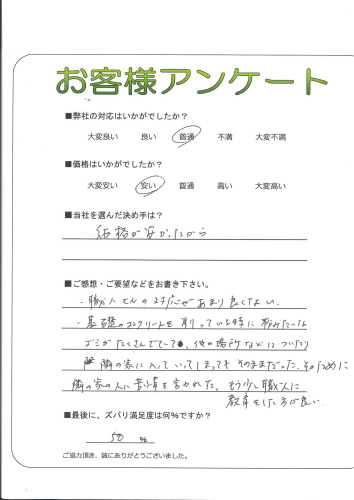 お客様アンケート
■弊社の対応はいかがでしたか?
大変良い 良い 普通 不満 大変不満
■価格はいかがでしたか?
大変安い 安い 普通 高い 大変高い
■当社を選んだ決め手は?
価格が安かったから
■ご感想・ご要望などをお書き下さい。
・職人さんの対応があまり良くない。
・基礎のコンクリートを削っている時に粉みたいな
ゴミがたくさんでていて、他の場所などについたり
隣の家に入っていってしまってもそのままだった。そのために
隣の家の人に苦情を言われた。もう少し職人に
教育をした方が良い。
■最後に、ズバリ満足度は何%ですか?
50 %
ご協力頂き、誠にありがとうございました。